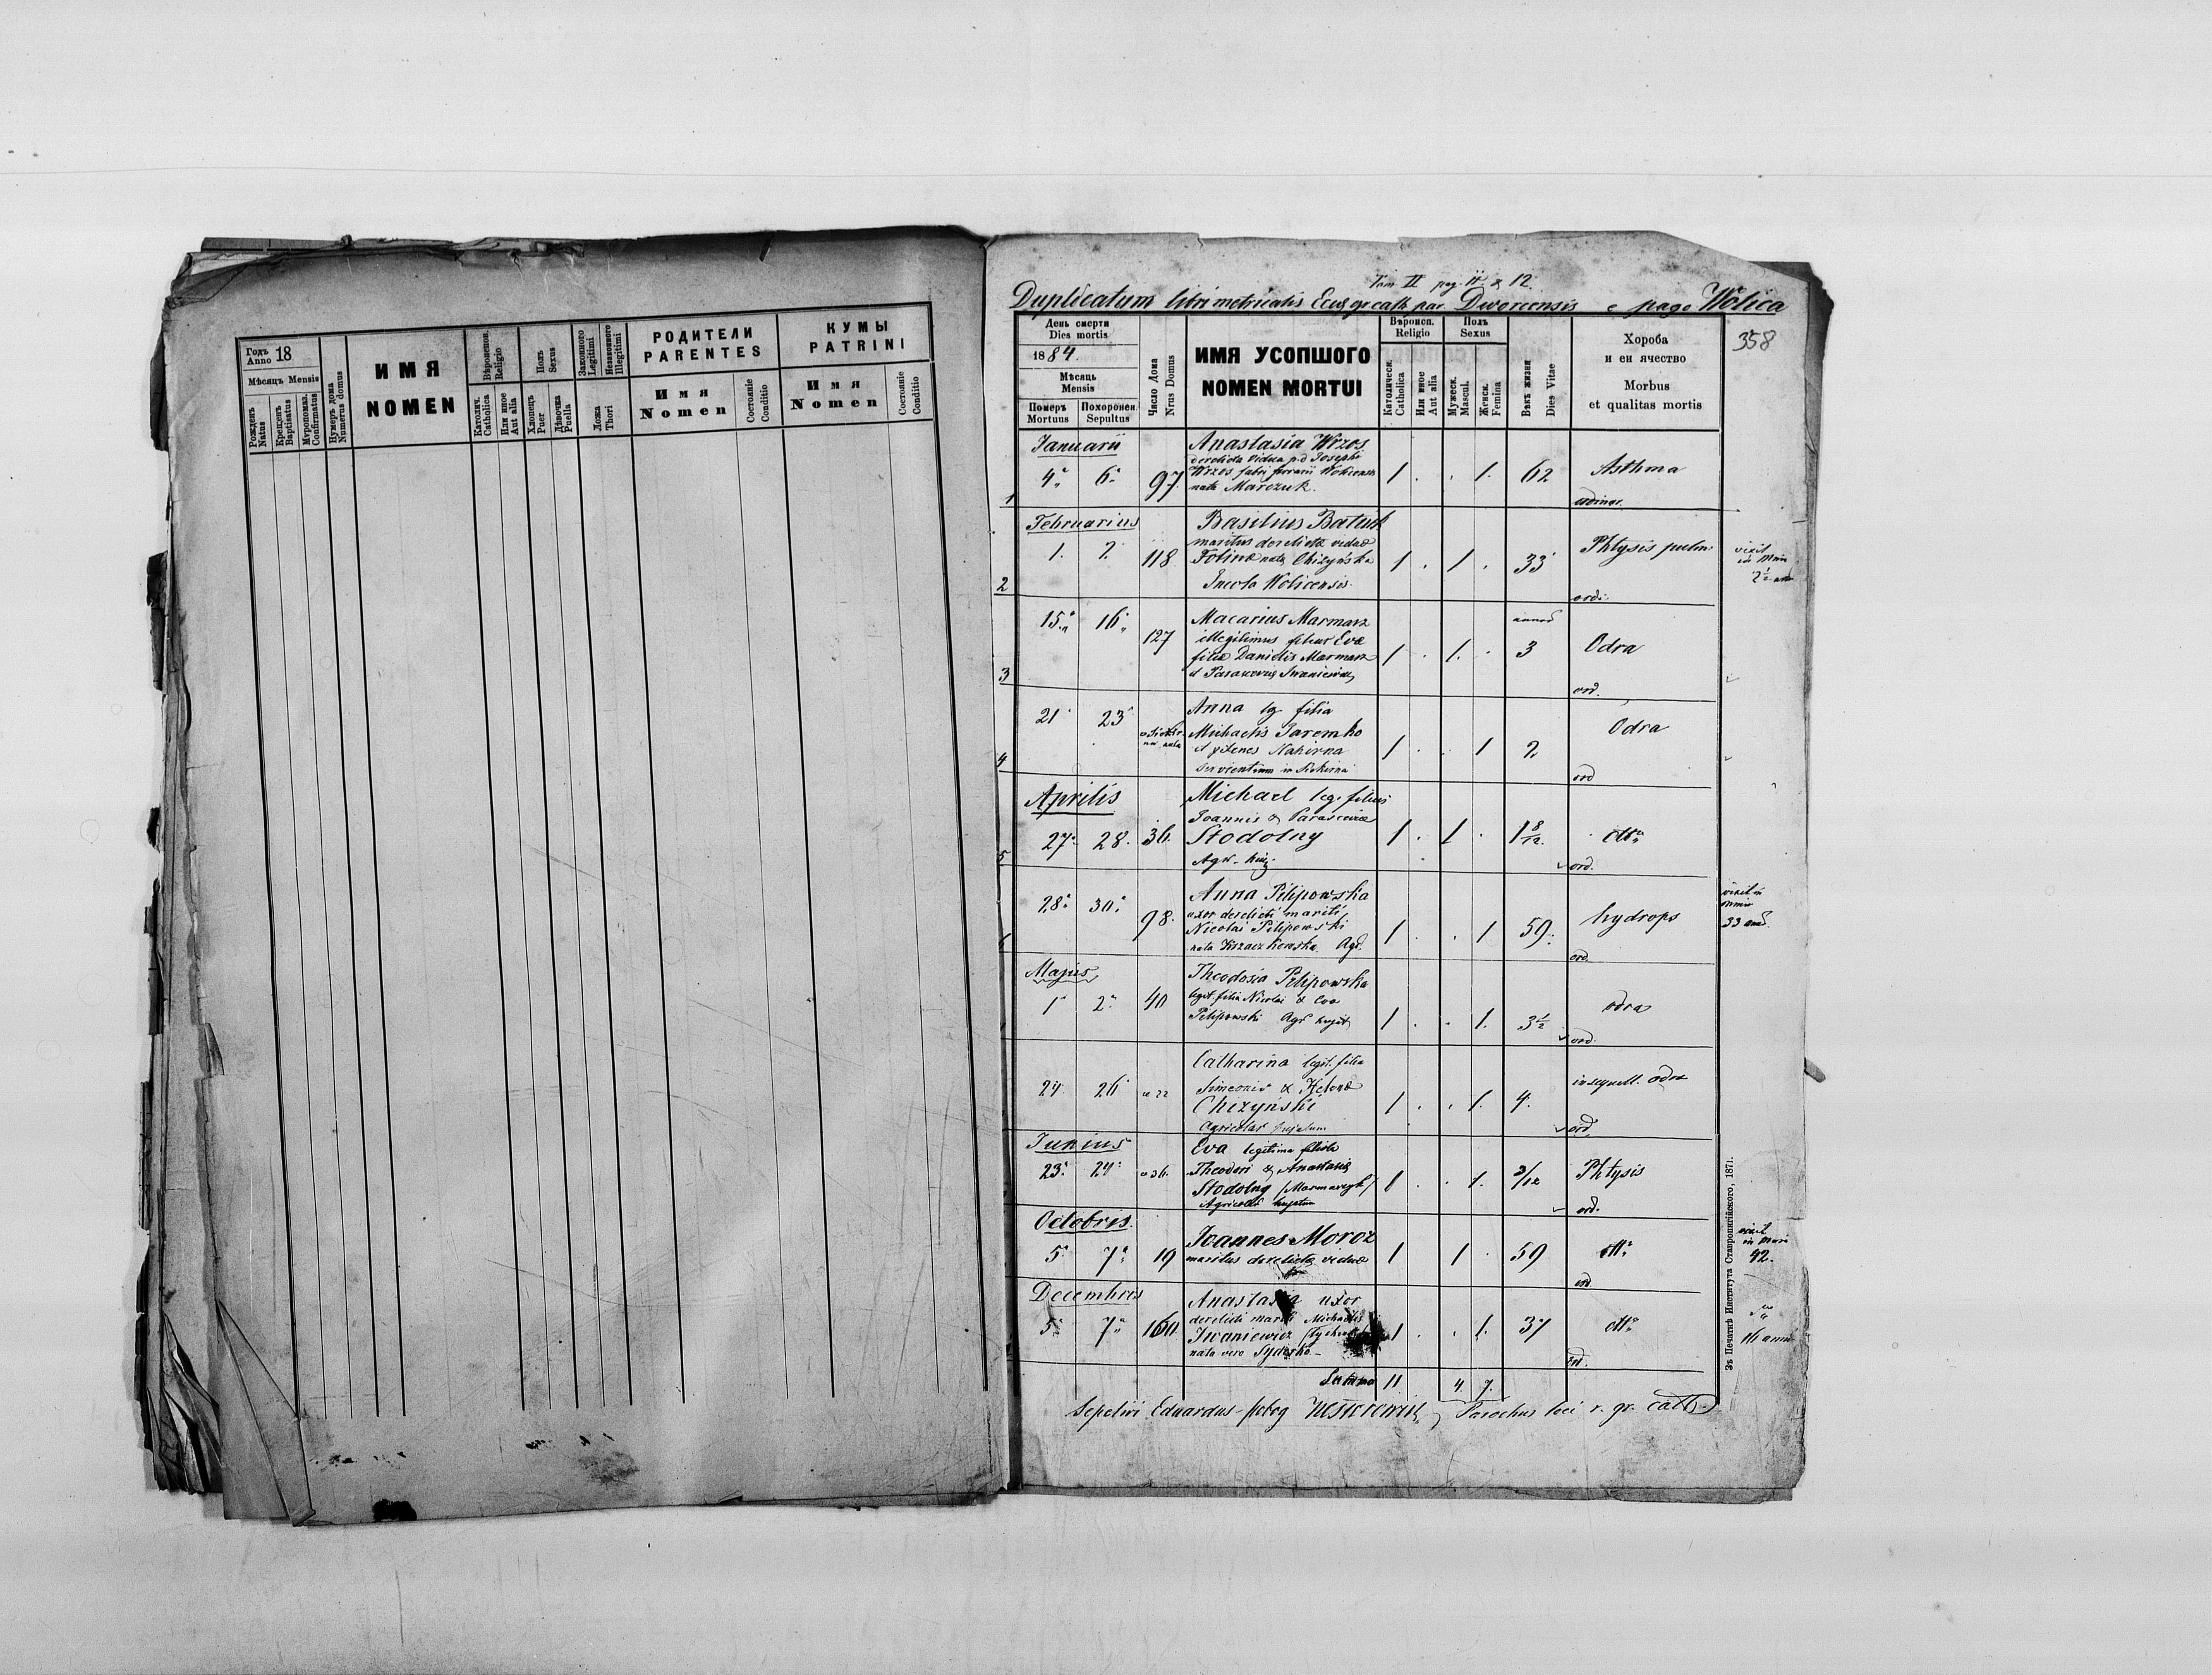 Годъ Anno 18
Мѣсяцъ Mensis
Рожденъ Natus
Крещенъ Baptisatus
Муропомаз. Confirmatus
Нумеръ дома Numerus domus
ИМЯ
NOMEN
Вѣроиспов. Religio
Католич. Catholica
Или иное Aut alia
Полъ Sexus
Хлопецъ Puer
Дѣвочка Puella
Законного Legitimi
Незаконного Illegitimi
Ложа Thori
РОДИТЕЛИ
PARENTES
Имя
Nomen
Состоянiе Conditio
КУМЫ
PATRINI
Имя
Nomen
Состоянiе Conditio
Tom II pag. 11 & 12.
Duplicatum libri metricalis gr cath par. Dworcensis e pago Wolica
358
День смерти
Dies mortis
1884.
Мѣсяцъ
Mensis
Померъ Mortuus
Похоронен. Sepultus
Число Дома Nrus Domus
ИМЯ УСОПШОГО
NOMEN MORTUI
Вѣроисп. Religio
Католическ. Catholica
Или иное Aut alia
Полъ Sexus
Мужеск. Mascul.
Женск. Femina
Вѣкъ жизни Dies Vitae
Хороба
и еи ячество
Morbus
et qualitas mortis
Januarii
Anastasia Wrzos
derelicta vidua p.d Josephi
Wrzos fabri ferrarii
nata Marczuk.
1 4 6 97 1 . . 1. 62 Asthma
ordinar.
Februarius
Basilius Batiuk
maritus derelictae viduae
nata Chizyńska
Incola Wolicensis
2 1. 2 118 1 . 1 . 33 Phtysis pulm
ordi.
vixit
2½
Macarius Marmarz
illegitimus filius Evae
filiae Danielis Marmarz
et
3 15 16 127 1 . 1. . annos 3 Odra
ord.
Anna lg filia
Michaelis Jaremko
et Nahirna
servientium in
4 21 23 1 . . 1 2 Odra
ord
Aprilis
Michael leg. filius
Joannis & Parasceviae
Stodolny
5 27 28. 36. 1 . 1 . 1 8/12. dtto
ord.
Anna Pilipowska
uxor derelicti mariti
Nicolai Pilipowski
nata Agr.
6 28 30 98. 1 . . 1 59. hydrops
ord.
vixit in
33
Majus
Theodosia Pilipowska
legit. filia Nicolai & Eva
Pilipowski Agr
1 2 40 1 . . 1. 3½ odra
ord.
Catharina legit. filia
Simeonis & Helenae
Chizyński
Agricolar hujatum
24 26 1 . . 1. 4. odra
ord.
Junius
Eva legitima filiola
Theodori & Anastasia
Stodolny (Marmarczyk)
Agricolae hujatum
23 24 36. 1 . . 1. 3/12 Phtysis
ord.
Octobris.
Joannes Moroz
maritus derelictae viduae
5 7 19 1 1 . 59 dtto
ord
vixit
in
42.
Decembris
Anastasia uxor
derelicti mariti Michaelis
Iwaniewicz
nata vero Syderko
5 7 160 1 . . 1. 37 dtto
ord.
16
Summa 11 4. 7.
Sepelivi Eduardus Parochus loci r. gr. cath
Зъ Печатнѣ Института Ставропигiйского, 1871.